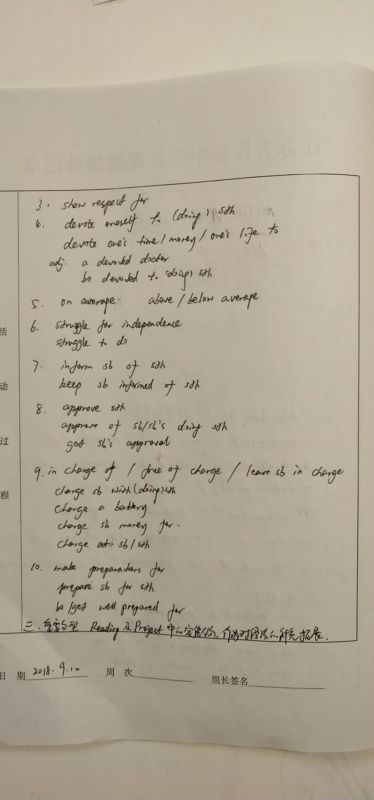 3. show respect for
4. devote oneself to (doing) sth
devote one's time / money / one's life to
adj. a devoted doctor
be devoted to (doing) sth
5. on average above / below average
6. struggle for independence
struggle to do
7. inform sb of sth
keep sb informed of sth
8. approve sth
approve of sb/sb's doing sth
get sb's approval
9. in charge of / free of charge / leave sb in charge
charge sb with (doing) sth
charge a battery
charge sb money for.
charge at sb / sth
10. make preparations for
prepare sb for sth
be/get well prepared for
三. 重要句型 Reading 及 Project 中
活
动
过
程
日 期 2018. 9. 12 周 次 组长签名